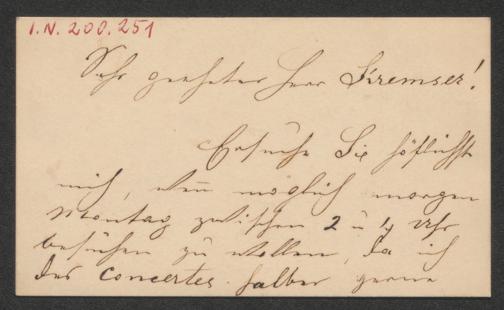 I.N. 200.251
Sehr geehrter Herr Kremser!
Ersuche Sie höflichst
mich, wenn möglich morgen
Montag zwischen 2 u 4 Uhr
besuchen zu wollen, da ich
des Concertes halber gerne